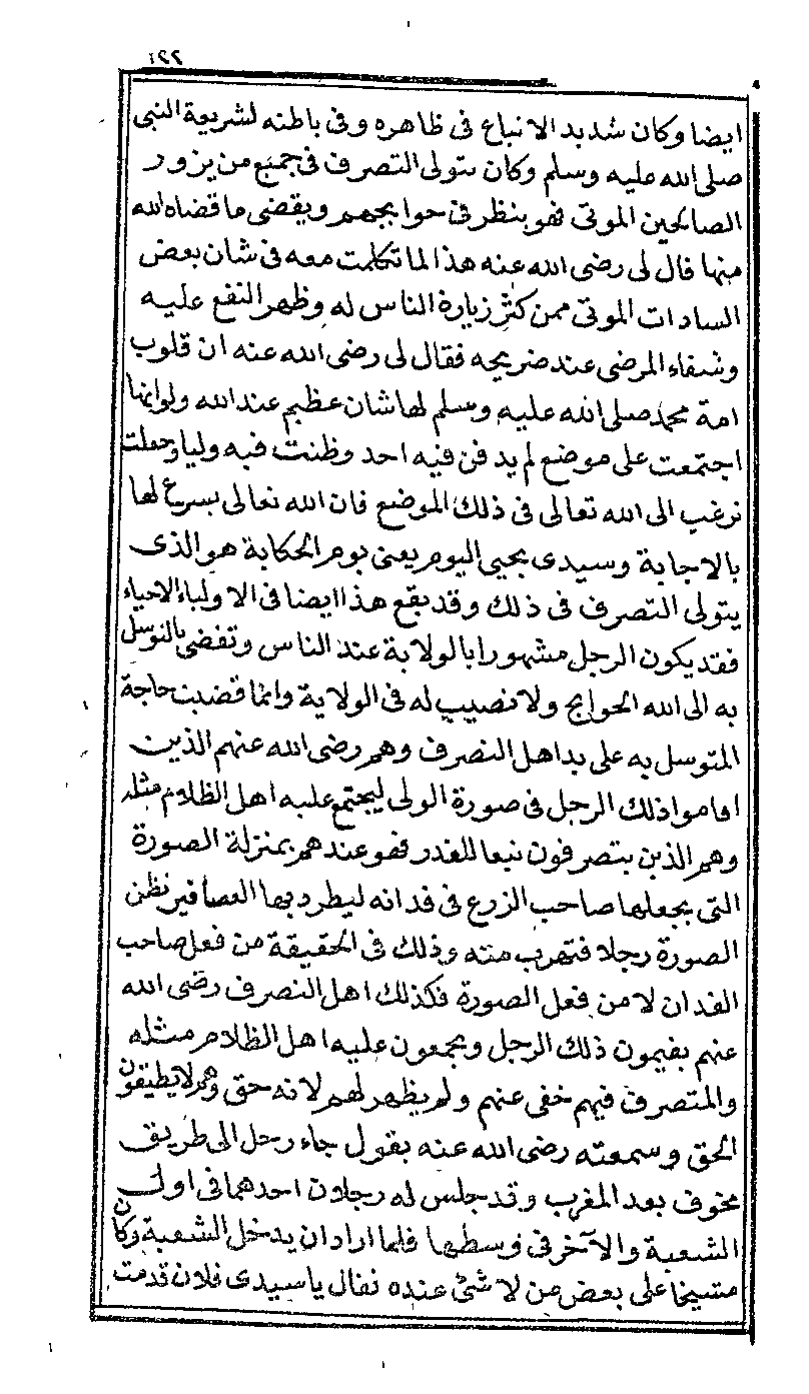 ٤٢٢
ايضا وكان شديد الاتباع فى ظاهره وفى باطنه لشريعة النبى
صلى الله عليه وسلم وكان يتولى التصرف فى جميع من يزور
الصالحين الموتى فهو ينظر فى حوايجهم ويقضى ما قضاه الله
منها قال لى رضى الله عنه هذا لما تكلمت معه فى شان بعض
السادات الموتى ممن كثر زيارة الناس له وظهر النفع عليه
وشفاء المرضى عند ضريحه فقال لى رضى الله عنه ان قلوب
امة محمد صلى الله عليه وسلم لها شان عظيم عند الله ولو انها
اجتمعت على موضع لم يدفن فيه احد وظنت فيه وليا وجعلت
ترغب الى الله تعالى فى ذلك الموضع فان الله تعالى يسرع لها
بالاجابة وسيدى يحيى اليوم يعنى يوم الحكاية هو الذى
يتولى التصرف فى ذلك وقد يقع هذا ايضا فى الاولياء الاحياء
فقد يكون الرجل مشهورا بالولاية عند الناس وتقضى بالتوسل
به الى الله الحوايج ولا نصيب له فى الولاية وانما قضيت حاجة
المتوسل به على يد اهل التصرف وهم رضى الله عنهم الذين
اقاموا ذلك الرجل فى صورة الولى ليجتمع عليه اهل الظلام مثله
وهم الذين يتصرفون تبعا للقدر فهو عندهم بمنزلة الصورة
التى يجعلها صاحب الزرع فى فدانه ليطرد بها العصافير نظن
الصورة رجلا فتهرب منه وذلك فى الحقيقة من فعل صاحب
الفدان لا من فعل الصورة فكذلك اهل التصرف رضى الله
عنهم يقيمون ذلك الرجل ويجمعون عليه اهل الظلام مثله
والمتصرف فيهم خفى عنهم ولم يظهر لهم لانه حق وهم لا يطيقون
الحق وسمعته رضى الله عنه يقول جاء رجل الى طريق
مخوف بعد المغرب وقد جلس له رجلان احدهما فى اول
الشعبة والآخر فى وسطها فلما اراد ان يدخل الشعبة وكان
متشيخا على بعض من لا شئ عنده فقال يا سيدى فلان قدمت